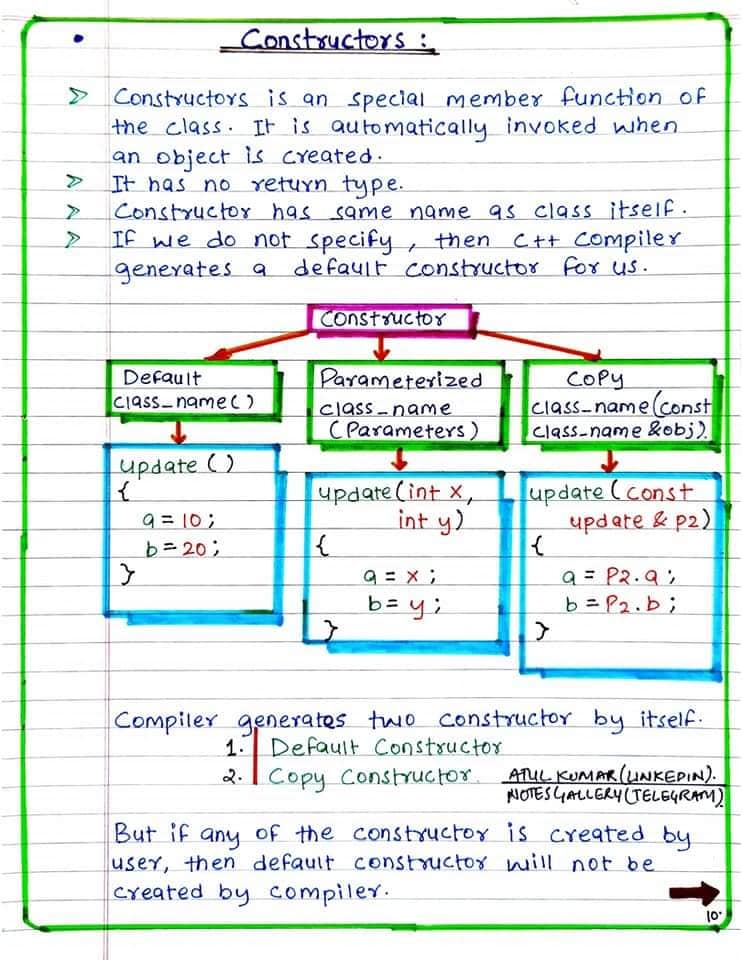 • Constructors :
➢ Constructors is an special member function of
the class. It is automatically invoked when
an object is created.
➢ It has no return type.
➢ Constructor has same name as class itself.
➢ If we do not specify, then C++ compiler
generates a default constructor for us.
Constructor
Default
class_name()
Parameterized
class_name
(Parameters)
Copy
class_name(const
class_name &obj).
update ()
{
a = 10 ;
b = 20 ;
}
update(int x,
int y)
{
a = x ;
b = y ;
}
update (const
update & p2)
{
a = P2.a ;
b = P2.b ;
}
Compiler generates two constructor by itself.
1. Default Constructor
2. Copy Constructor.
ATUL KUMAR (LINKEDIN).
NOTES GALLERY (TELEGRAM)
But if any of the constructor is created by
user, then default constructor will not be
created by compiler.
10.